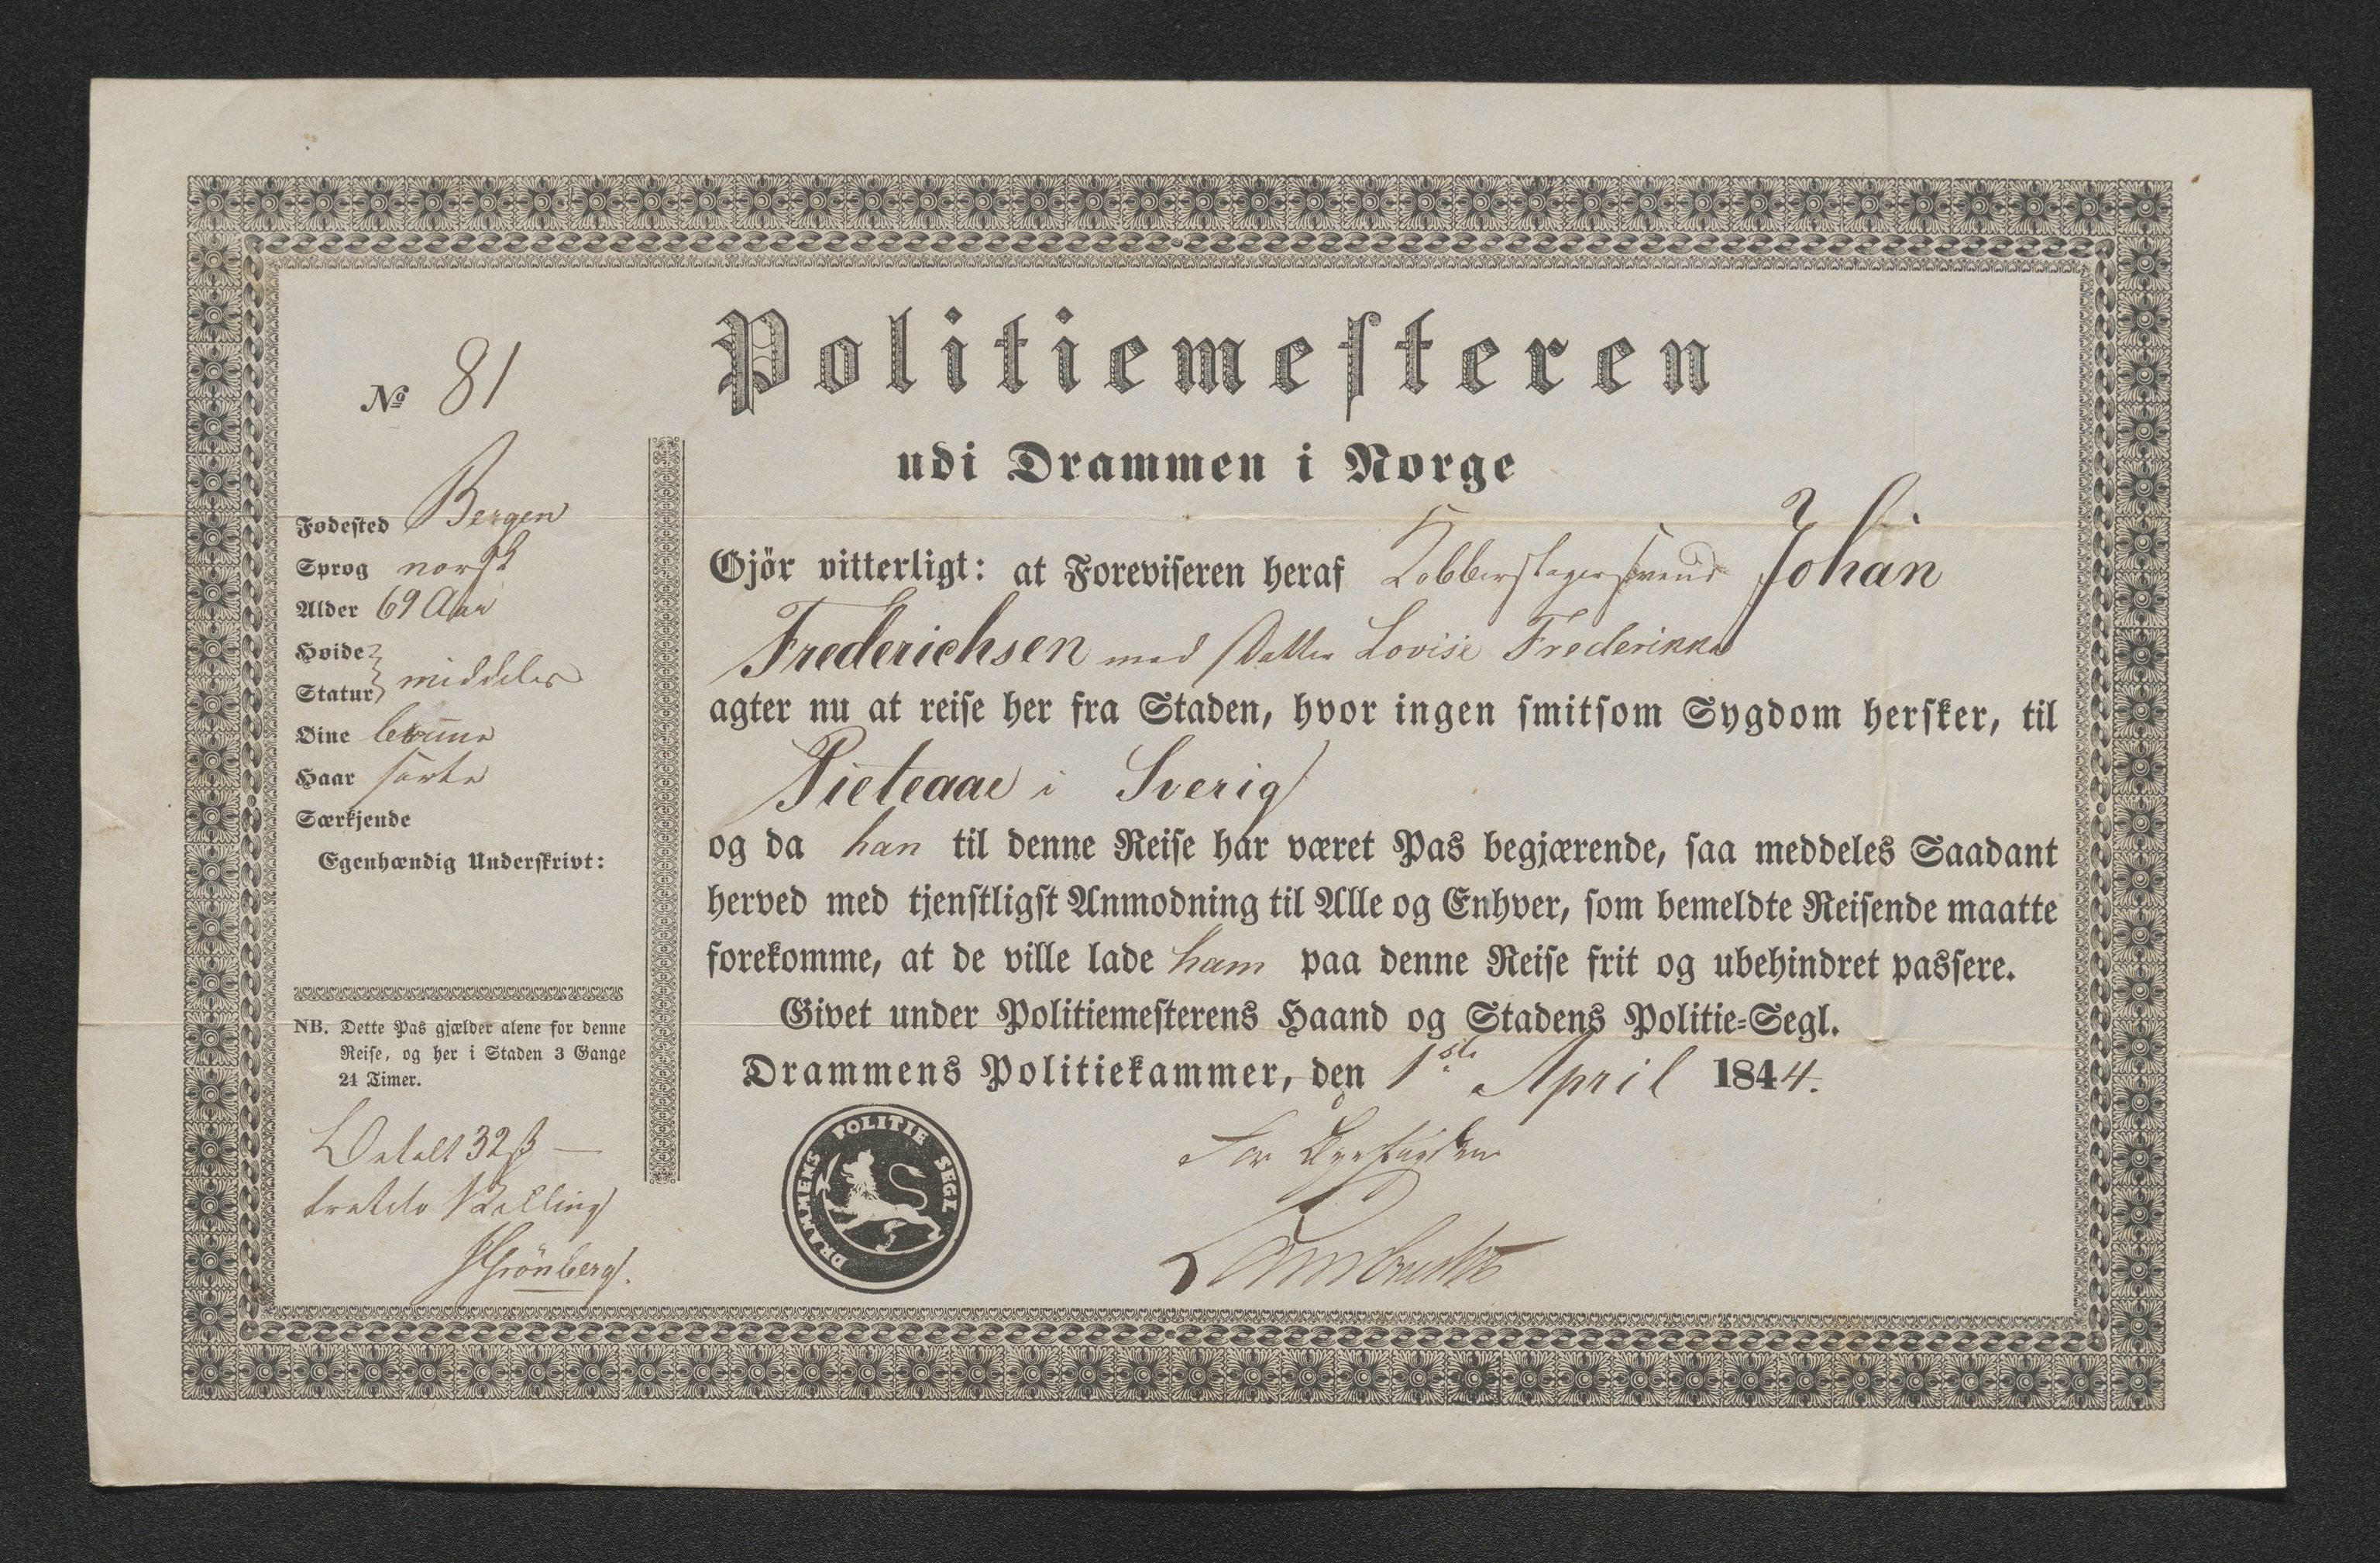 Politiemesteren
udi Drammen i Norge
No 81
Fødested Bergen
Sprog norsk
Alder 69 Aar
Høide
Statur middels
Øine brune
Haar sorte
Særkjende
Egenhændig Underskrivt:
NB. Dette Pas gjælder alene for denne
Reise, og her i Staden 3 Gange
24 Timer.
Betalt 32 ß —
tretito Skilling
Grönberg.
Gjör vitterligt: at Foreviseren heraf Kobberslagersvend Johan
Frederichsen med Datter Lovise Frederikke
agter nu at reise her fra Staden, hvor ingen smitsom Sygdom hersker, til
Pieteaae i Sverig
og da han til denne Reise har været Pas begjærende, saa meddeles Saadant
herved med tjenstligst Anmodning til Alle og Enhver, som bemeldte Reisende maatte
forekomme, at de ville lade ham paa denne Reise frit og ubehindret passere.
Givet under Politiemesterens Haand og Stadens Politie-Segl.
Drammens Politiekammer, den 1ste April 1844.
DRAMMENS POLITIE SEGL
For